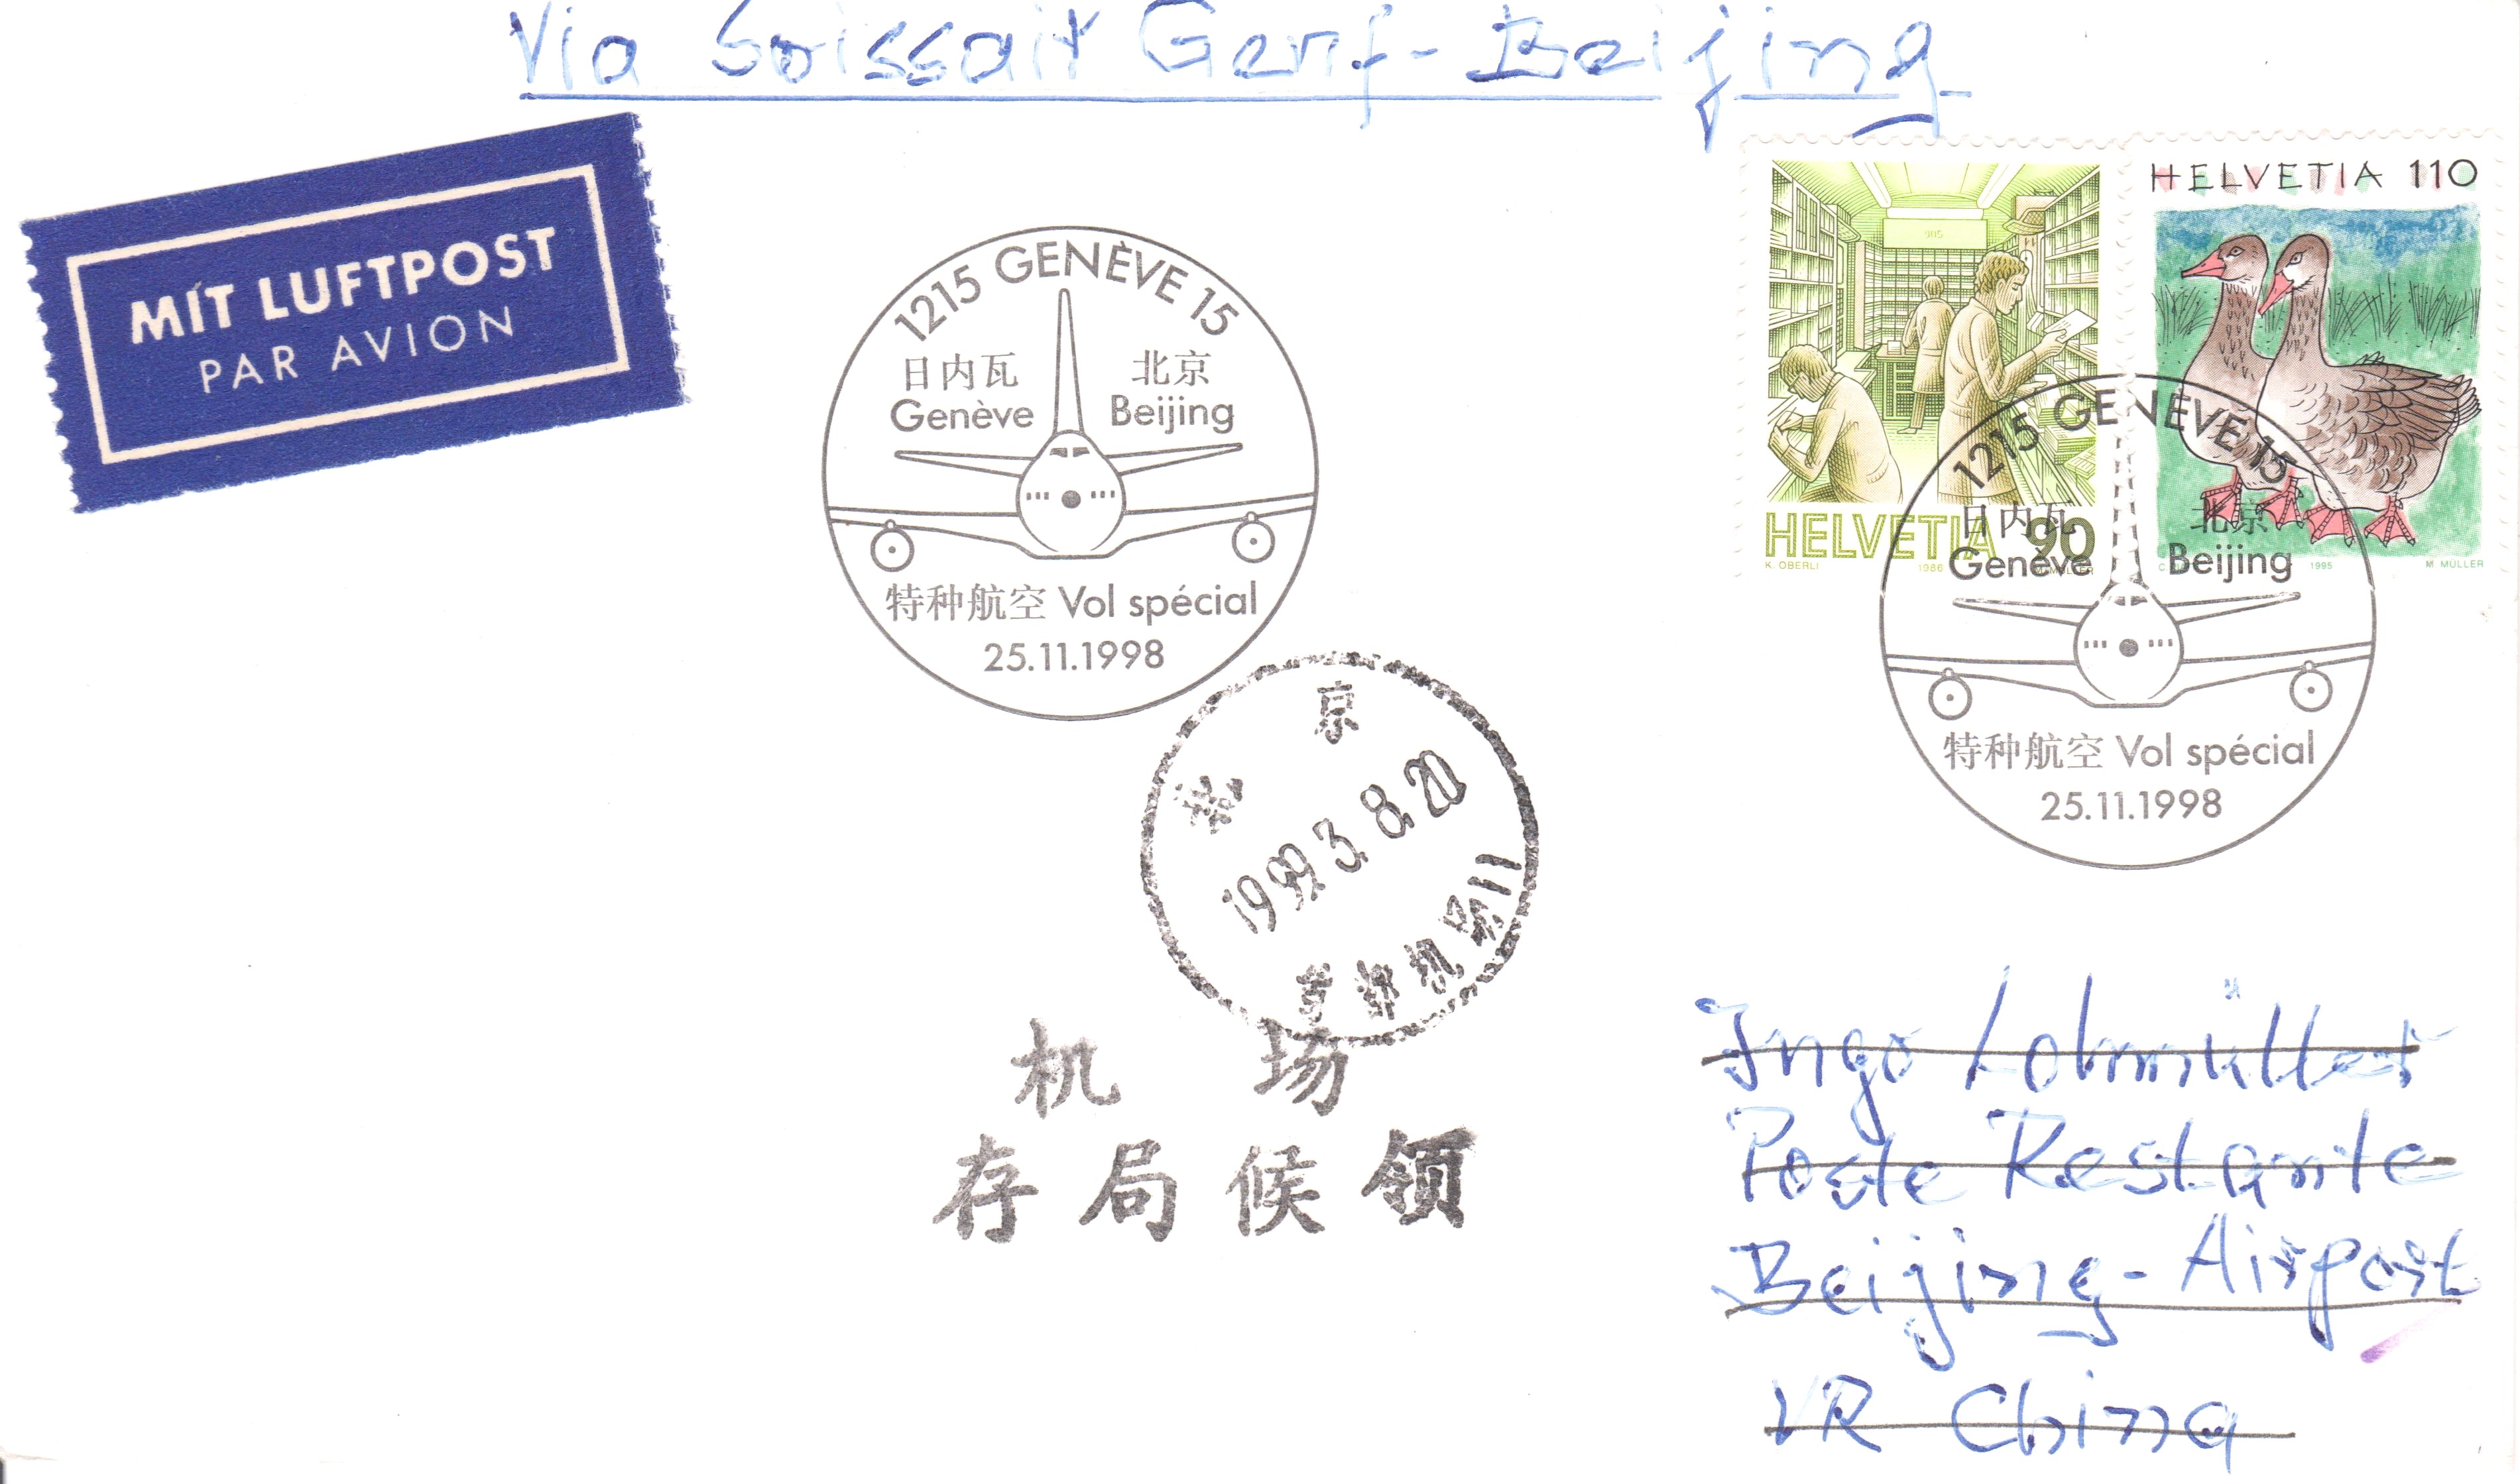 Via Swissair Genf - Beijing
MIT LUFTPOST
PAR AVION
1215 GENÈVE 15
日内瓦 北京
Genève Beijing
特种航空 Vol spécial
25.11.1998
HELVETIA 90
K. OBERLI 1986 M. MÜLLER
HELVETIA 110
1995 M. MÜLLER
1215 GENÈVE 15
日内瓦 北京
Genève Beijing
特种航空 Vol spécial
25.11.1998
北京
1999.3.8.20
首都机场
机场
存局候领
Ingo
Poste Restante
Beijing - Airport
VR China